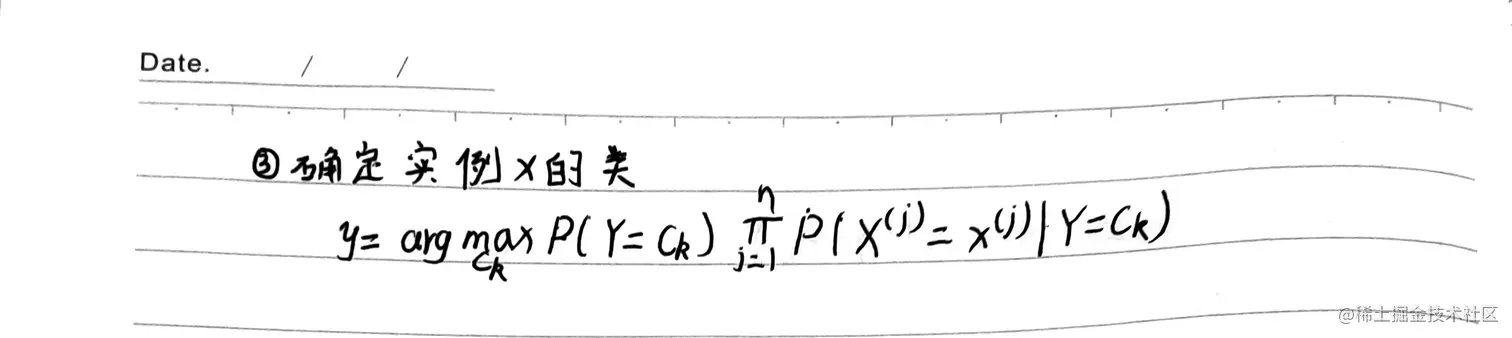 Date. / /
③确定实例x的类
y= arg max_{C_k} P(Y=C_k) ∏_{j=1}^{n} P(X^{(j)}=x^{(j)}|Y=C_k)
@稀土掘金技术社区